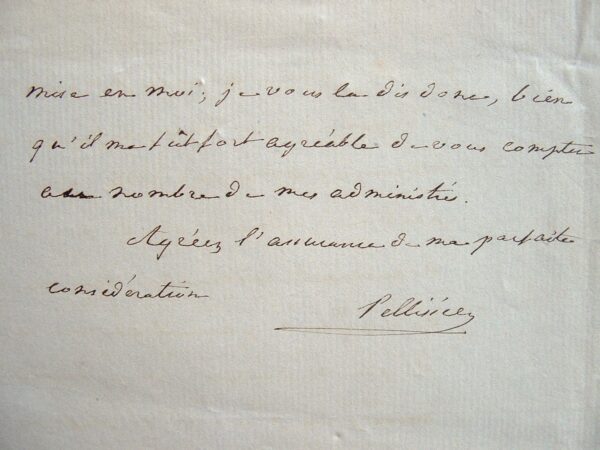 mise en moi; je vous la dis donc, bien
qu'il me fût fort agréable de vous compter
au nombre de mes administrés.
Agréez l'assurance de ma parfaite
considération